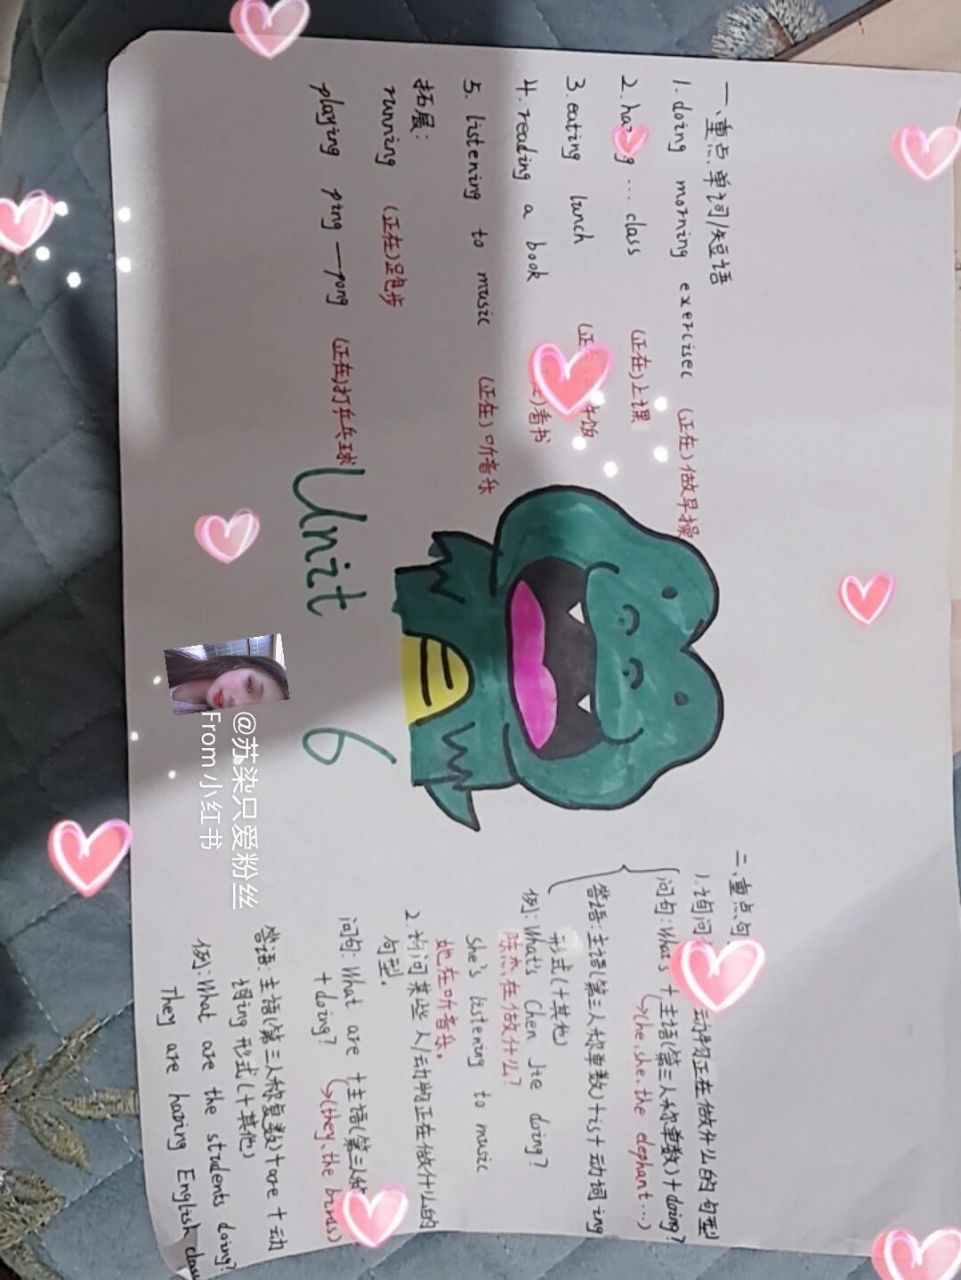 一、重点单词/短语
1. doing morning exercisec (正在)做早操
2. ha g ... class (正在)上课
3. eating lunch (正 午饭
4. reading a book 在)看书
5. listening to music (正在)听音乐
拓展:
running (正在)跑步
playing ping-pong (正在)打乒乓球
Unit 6
二、重点句
1. 询问 动物正在做什么的句型
问句: What's + 主语(第三人称单数) + doing?
(he.she.the elephant...)
答语: 主语(第三人称单数) + is + 动词 ing
形式(+其他)
例: What's Chen Jie doing?
陈杰在做什么?
She's listening to music
她在听音乐。
2. 询问某些人/动物正在做什么的
句型。
问句: What are + 主语(第三人称
+ doing? (they、the birds)
答语: 主语(第三人称复数) + are + 动
词ing 形式(+其他)
例: What are the students doing?
They are having English class
@苏染只爱粉丝
From 小红书